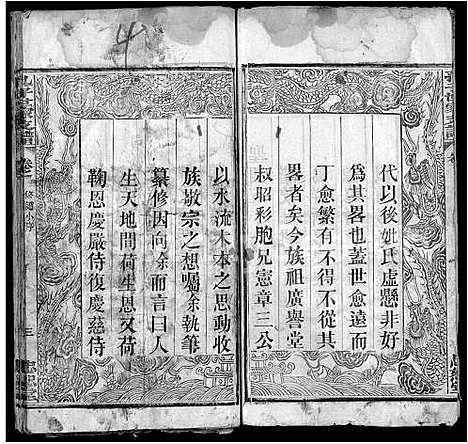 代以後妣氏虛懸非好
爲其畧也蓋世愈遠而
丁愈繁有不得不從其
畧者矣今族祖廣譽堂
叔昭彩胞兄憲章三公
以水流木本之思動收
族敬宗之想囑余執筆
纂修因向余而言曰人
生天地間荷生恩又荷
鞠恩慶嚴侍復慶慈侍
卷二
三
4